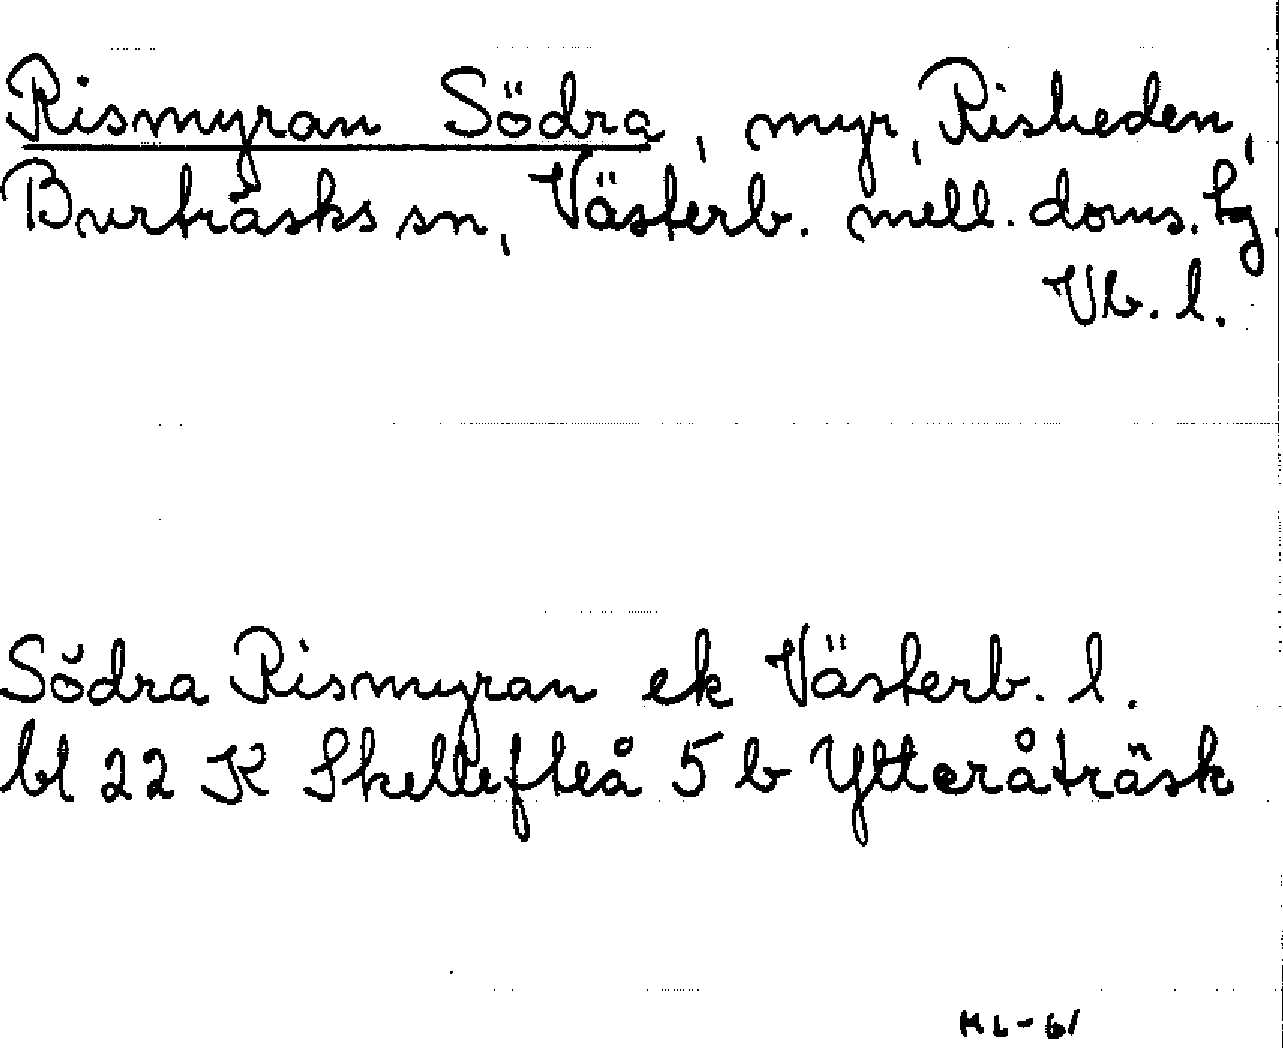 Rismyran Södra, myr, Risheden,
Burträsks sn, Västerb. mell. doms. tg
Vb. l.
Södra Rismyran ek Västerb. l.
bl 22 K Skellefteå 5 b Ytteråträsk
KL-61